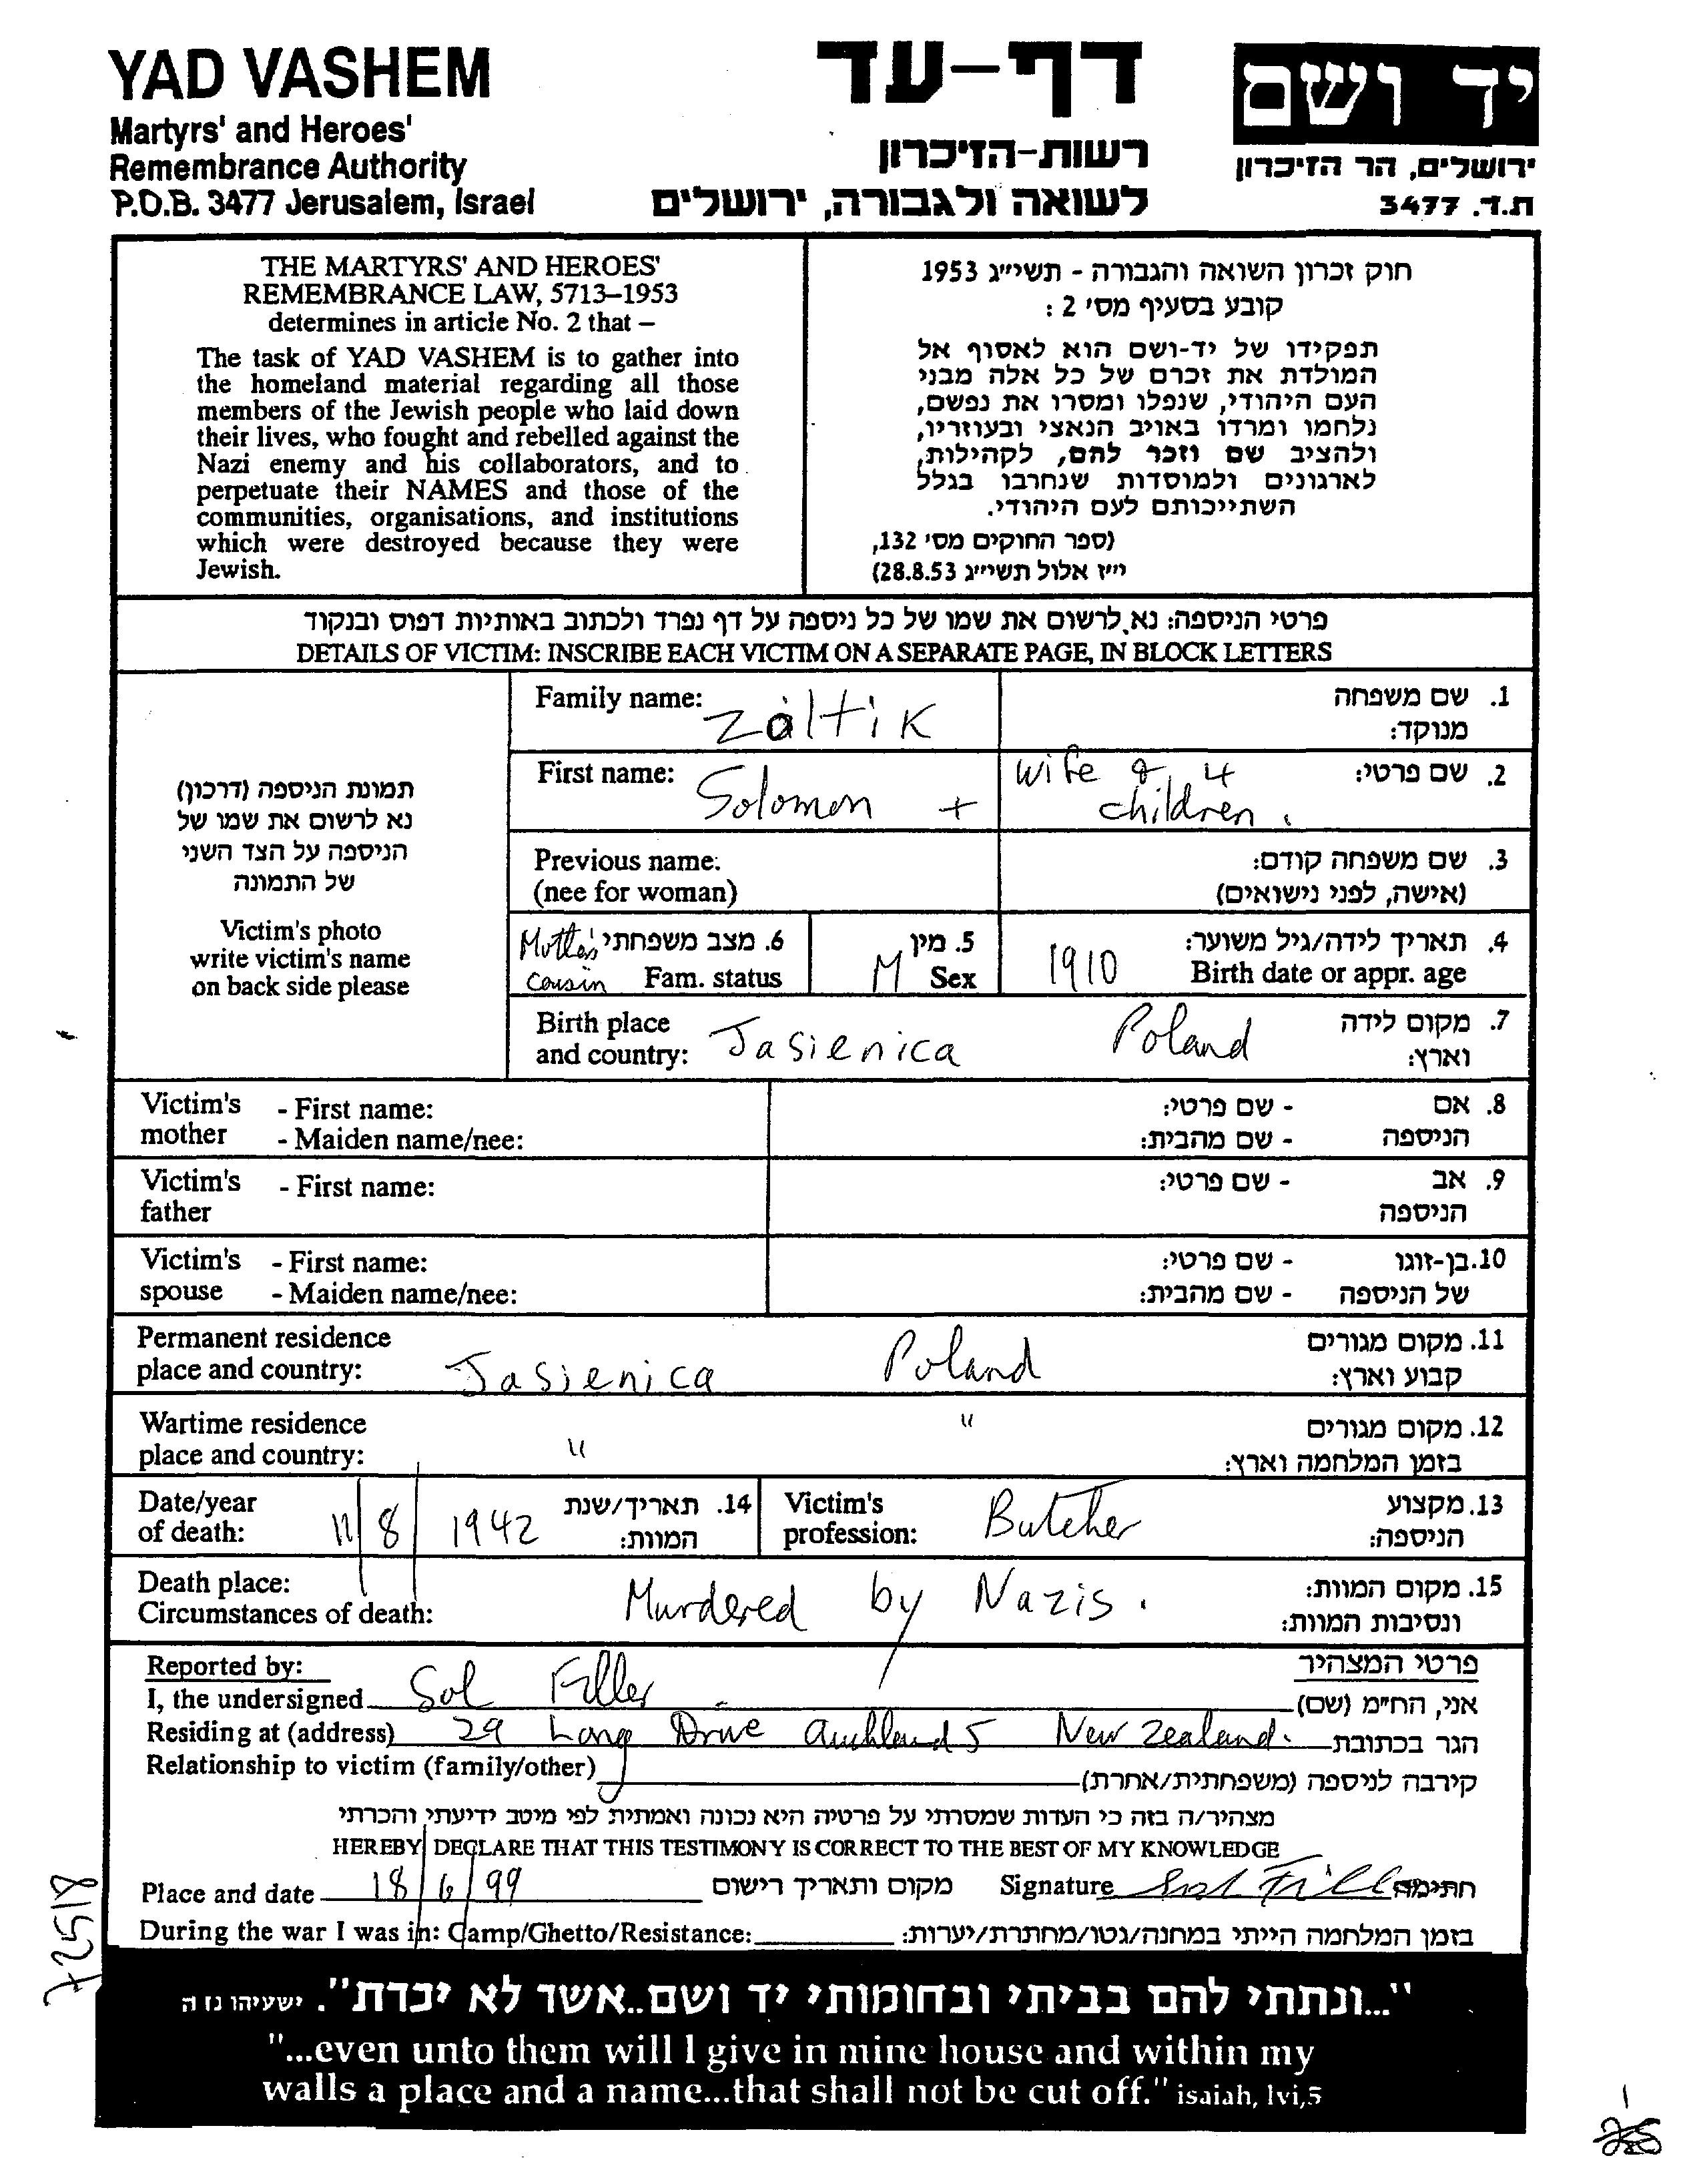 YAD VASHEM
Martyrs' and Heroes'
Remembrance Authority
P.O.B. 3477 Jerusalem, Israel
דף-עד
רשות-הזיכרון
לשואה ולגבורה, ירושלים
יד ושם
ירושלים, הר הזיכרון
ת.ד. 3477
THE MARTYRS' AND HEROES'
REMEMBRANCE LAW, 5713–1953
determines in article No. 2 that –
The task of YAD VASHEM is to gather into
the homeland material regarding all those
members of the Jewish people who laid down
their lives, who fought and rebelled against the
Nazi enemy and his collaborators, and to
perpetuate their NAMES and those of the
communities, organisations, and institutions
which were destroyed because they were
Jewish.
חוק זכרון השואה והגבורה - תשי״ג 1953
קובע בסעיף מס׳ 2 :
תפקידו של יד-ושם הוא לאסוף אל
המולדת את זכרם של כל אלה מבני
העם היהודי, שנפלו ומסרו את נפשם,
נלחמו ומרדו באויב הנאצי ובעוזריו,
ולהציב שם וזכר להם, לקהילות,
לארגונים ולמוסדות שנחרבו בגלל
השתייכותם לעם היהודי.
(ספר החוקים מס׳ 132,
י״ז אלול תשי״ג 28.8.53)
פרטי הניספה: נא לרשום את שמו של כל ניספה על דף נפרד ולכתוב באותיות דפוס ובנקוד
DETAILS OF VICTIM: INSCRIBE EACH VICTIM ON A SEPARATE PAGE, IN BLOCK LETTERS
תמונת הניספה (דרכון)
נא לרשום את שמו של
הניספה על הצד השני
של התמונה
Victim's photo
write victim's name
on back side please
Family name: Zaltik 1. שם משפחה
מנוקד:
First name: Solomon + wife & 4 children. 2. שם פרטי:
Previous name: 3. שם משפחה קודם:
(nee for woman) (אישה, לפני נישואים)
Mother's cousin 6. מצב משפחתי Fam. status
M 5. מין Sex
1910 4. תאריך לידה/גיל משוער:
Birth date or appr. age
Birth place 7. מקום לידה
and country: Jasienica Poland וארץ:
Victim's - First name: - שם פרטי: 8. אם
mother - Maiden name/nee: - שם מהבית: הניספה
Victim's - First name: - שם פרטי: 9. אב
father הניספה
Victim's - First name: - שם פרטי: 10. בן-זוגו
spouse - Maiden name/nee: - שם מהבית: של הניספה
Permanent residence 11. מקום מגורים
place and country: Jasienica Poland קבוע וארץ:
Wartime residence 12. מקום מגורים
place and country: " " בזמן המלחמה וארץ:
Date/year 14. תאריך/שנת
of death: 11/8/1942 המוות:
Victim's 13. מקצוע
profession: Butcher הניספה:
Death place: 15. מקום המוות:
Circumstances of death: Murdered by Nazis. ונסיבות המוות:
Reported by: פרטי המצהיר
I, the undersigned Sol Filler אני, הח״מ (שם)
Residing at (address) 29 Long Drive Auckland 5 New Zealand. הגר בכתובת
Relationship to victim (family/other) קירבה לניספה (משפחתית/אחרת)
מצהיר/ה בזה כי העדות שמסרתי על פרטיה היא נכונה ואמתית לפי מיטב ידיעתי והכרתי
HEREBY DECLARE THAT THIS TESTIMONY IS CORRECT TO THE BEST OF MY KNOWLEDGE
Place and date 18/6/99 מקום ותאריך רישום Signature Sol Filler חתימה
During the war I was in: Camp/Ghetto/Resistance: בזמן המלחמה הייתי במחנה/גטו/מחתרת/יערות:
"...ונתתי להם בביתי ובחומותי יד ושם..אשר לא יכרת". ישעיהו נו ה
"...even unto them will I give in mine house and within my
walls a place and a name...that shall not be cut off." isaiah, lvi,5